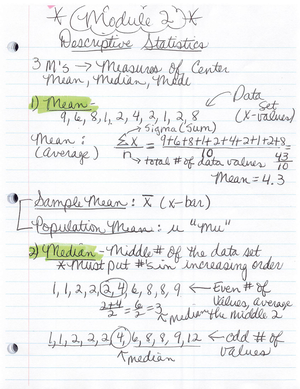 * (Module 2) *
Descriptive Statistics
3 M's → Measures of Center
Mean, Median, Mode
1) Mean -
9, 6, 8, 1, 2, 4, 2, 1, 2, 8
Data Set (X-values)
Sigma (Sum)
Mean: (Average) Σx/n = 9+6+8+1+2+4+2+1+2+8/10 = 43/10
total # of data values
Mean = 4.3
Sample Mean: x̄ (x-bar)
Population Mean: μ "mu"
2) Median - Middle # of the data set
* Must put #'s in increasing order
1, 1, 2, 2, 2, 4, 6, 8, 8, 9 ← Even # of values, average the middle 2
2+4/2 = 6/2 = 3
median
1, 1, 2, 2, 2, 4, 6, 8, 8, 9, 12 ← odd # of values
median